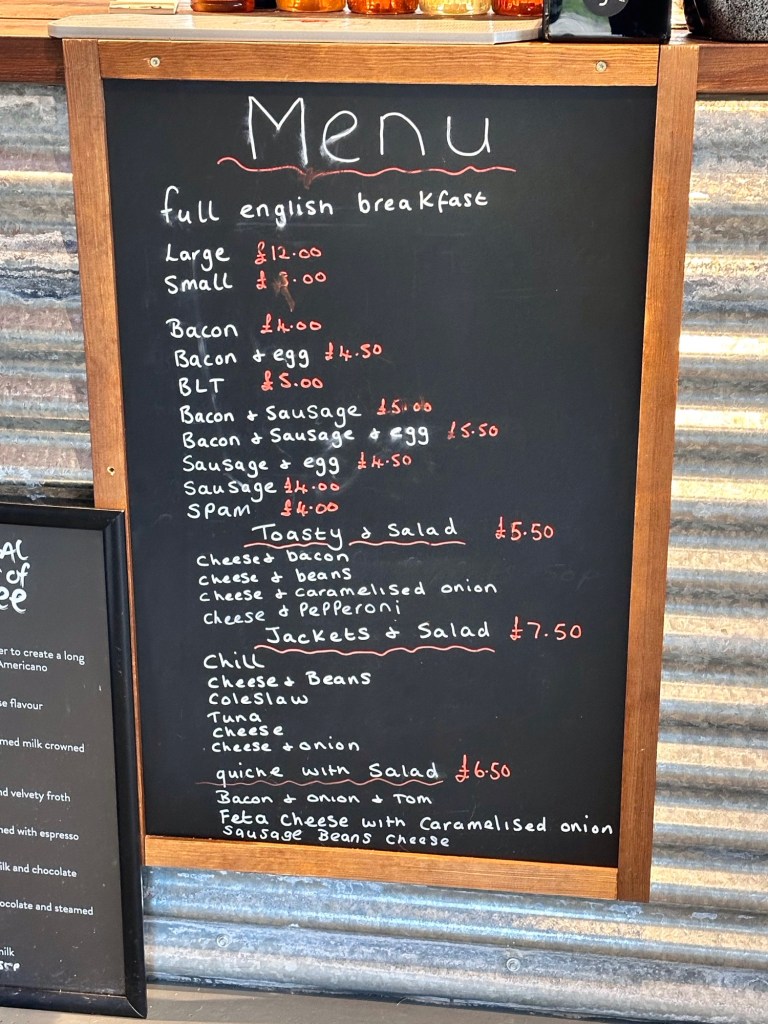 Menu
full english breakfast
Large £12.00
Small £ .00
Bacon £4.00
Bacon & egg £4.50
BLT £5.00
Bacon & Sausage £5.00
Bacon & Sausage & egg £5.50
Sausage & egg £4.50
Sausage £4.00
SPAM £4.00
Toasty & Salad £5.50
Cheese & bacon
cheese & beans
cheese & caramelised onion
cheese & Pepperoni
Jackets & Salad £7.50
Chilli
Cheese & Beans
Coleslaw
Tuna
cheese
cheese & onion
quiche with Salad £6.50
Bacon & onion & Tom
Feta cheese with Caramelised onion
Sausage Beans cheese
of
er to create a long
Americano
se flavour
med milk crowned
nd velvety froth
hed with espresso
ilk and chocolate
ocolate and steamed
milk